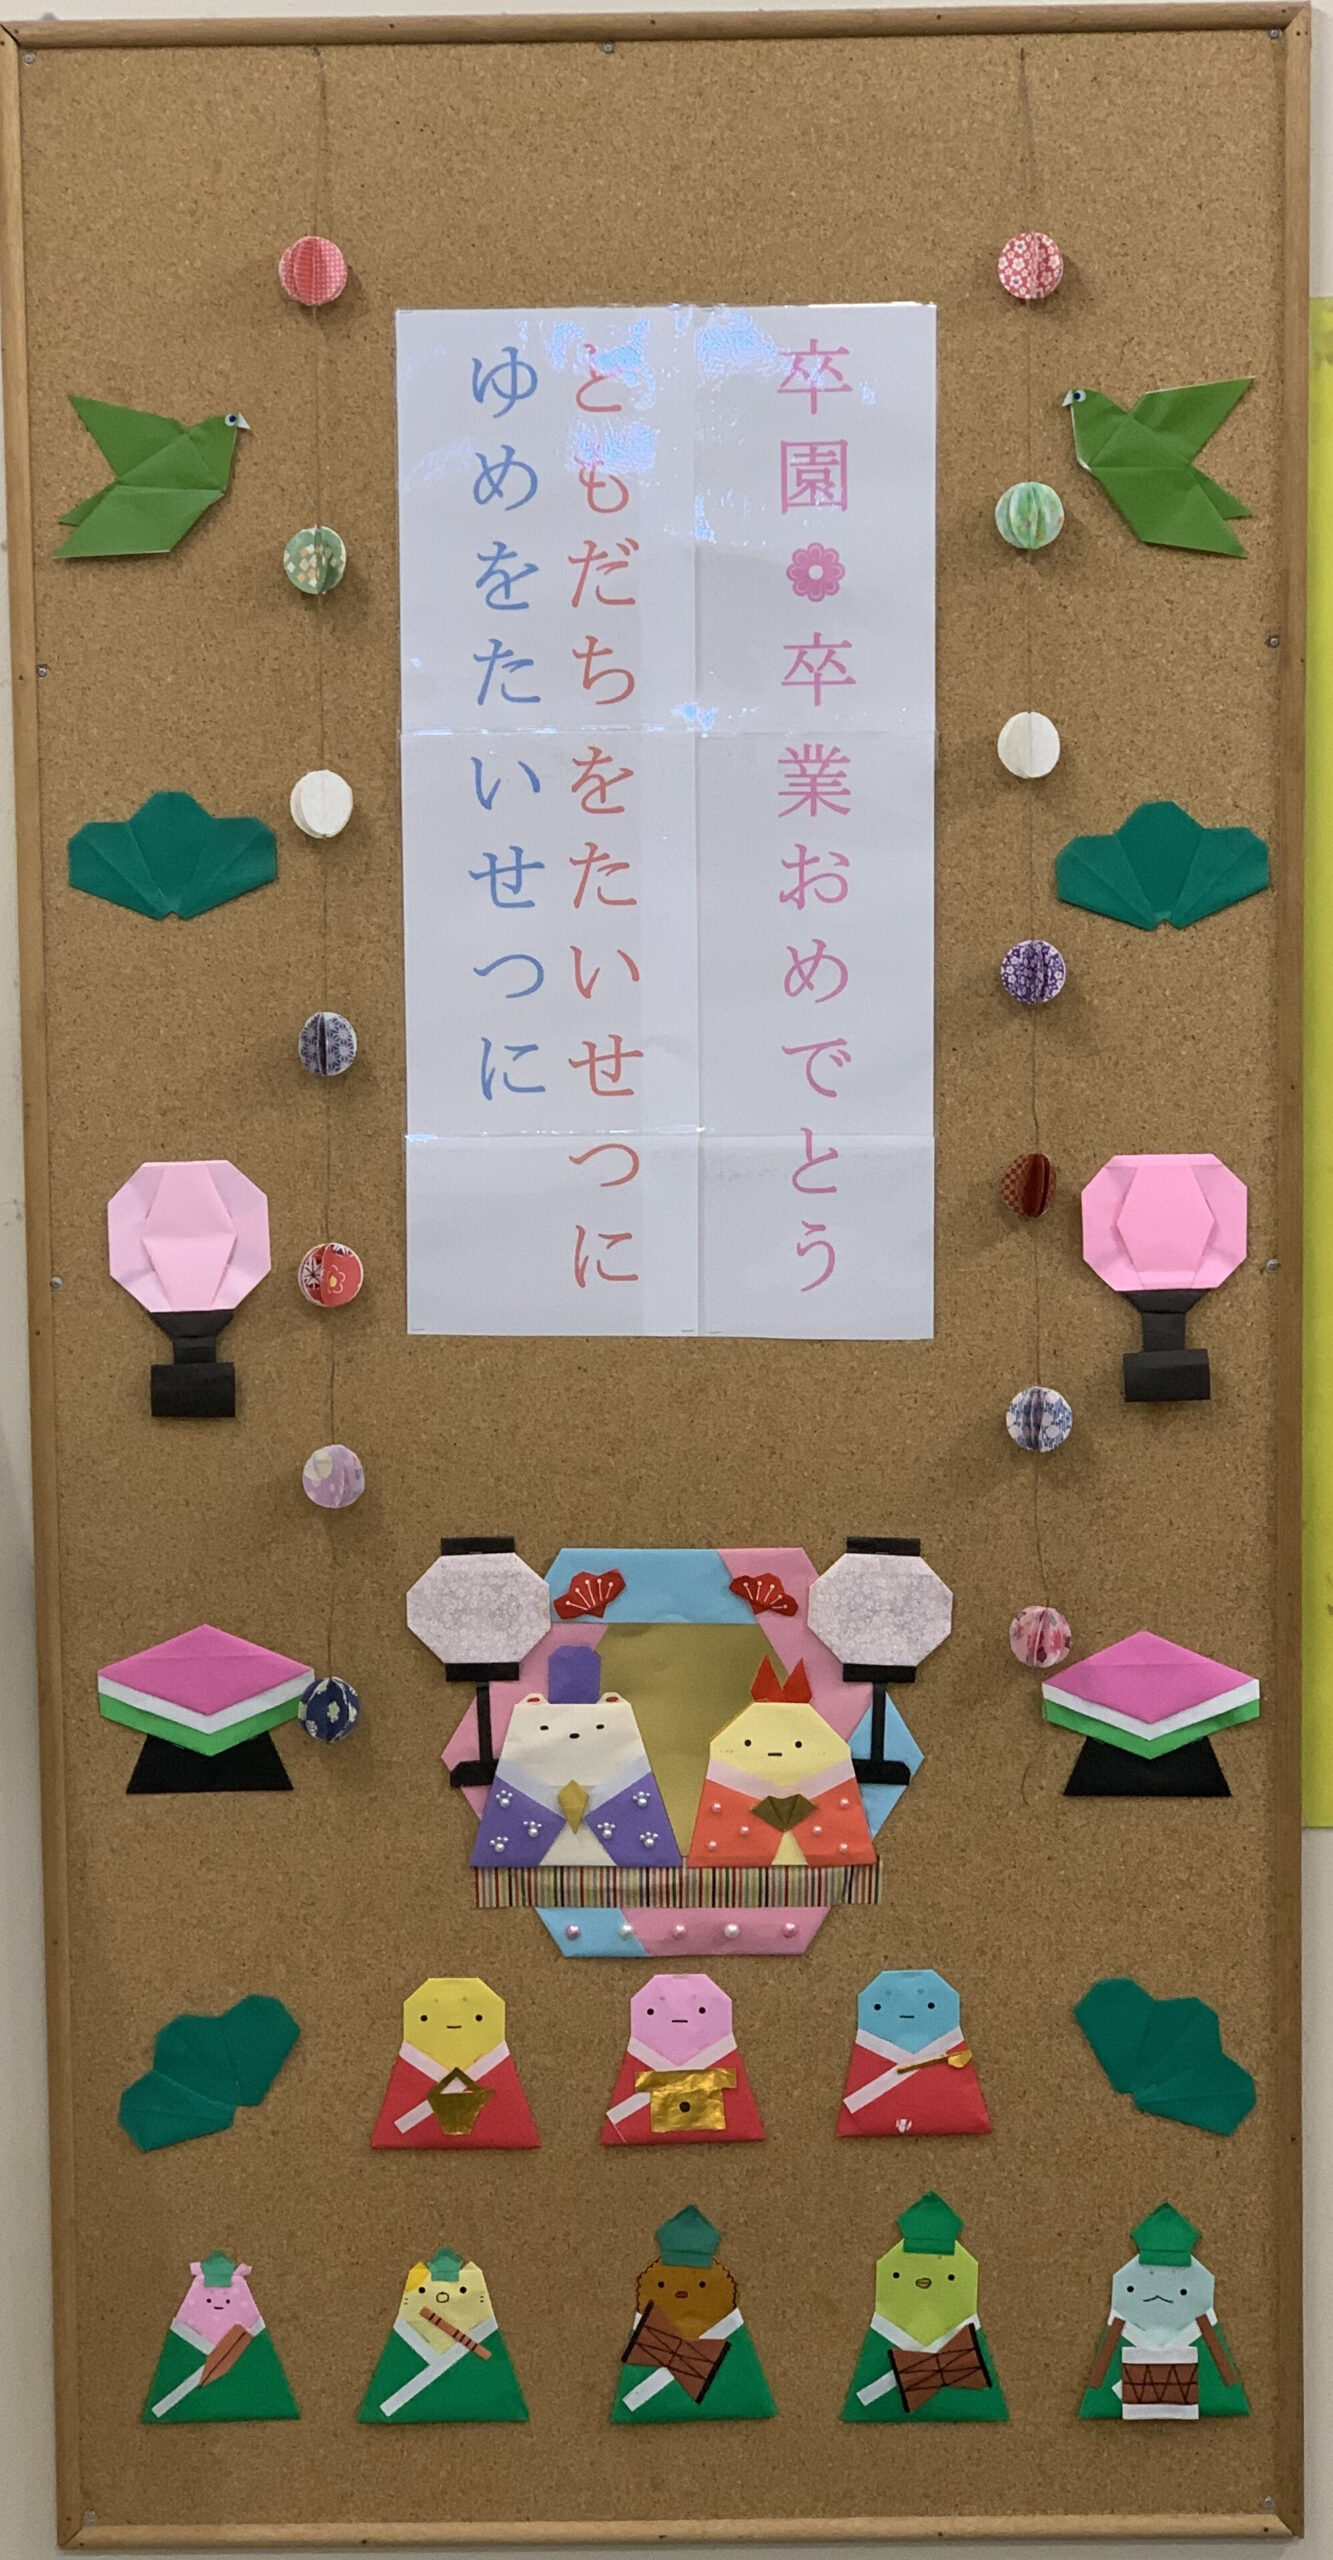 卒園❁卒業おめでとう
ともだちをたいせつに
ゆめをたいせつに